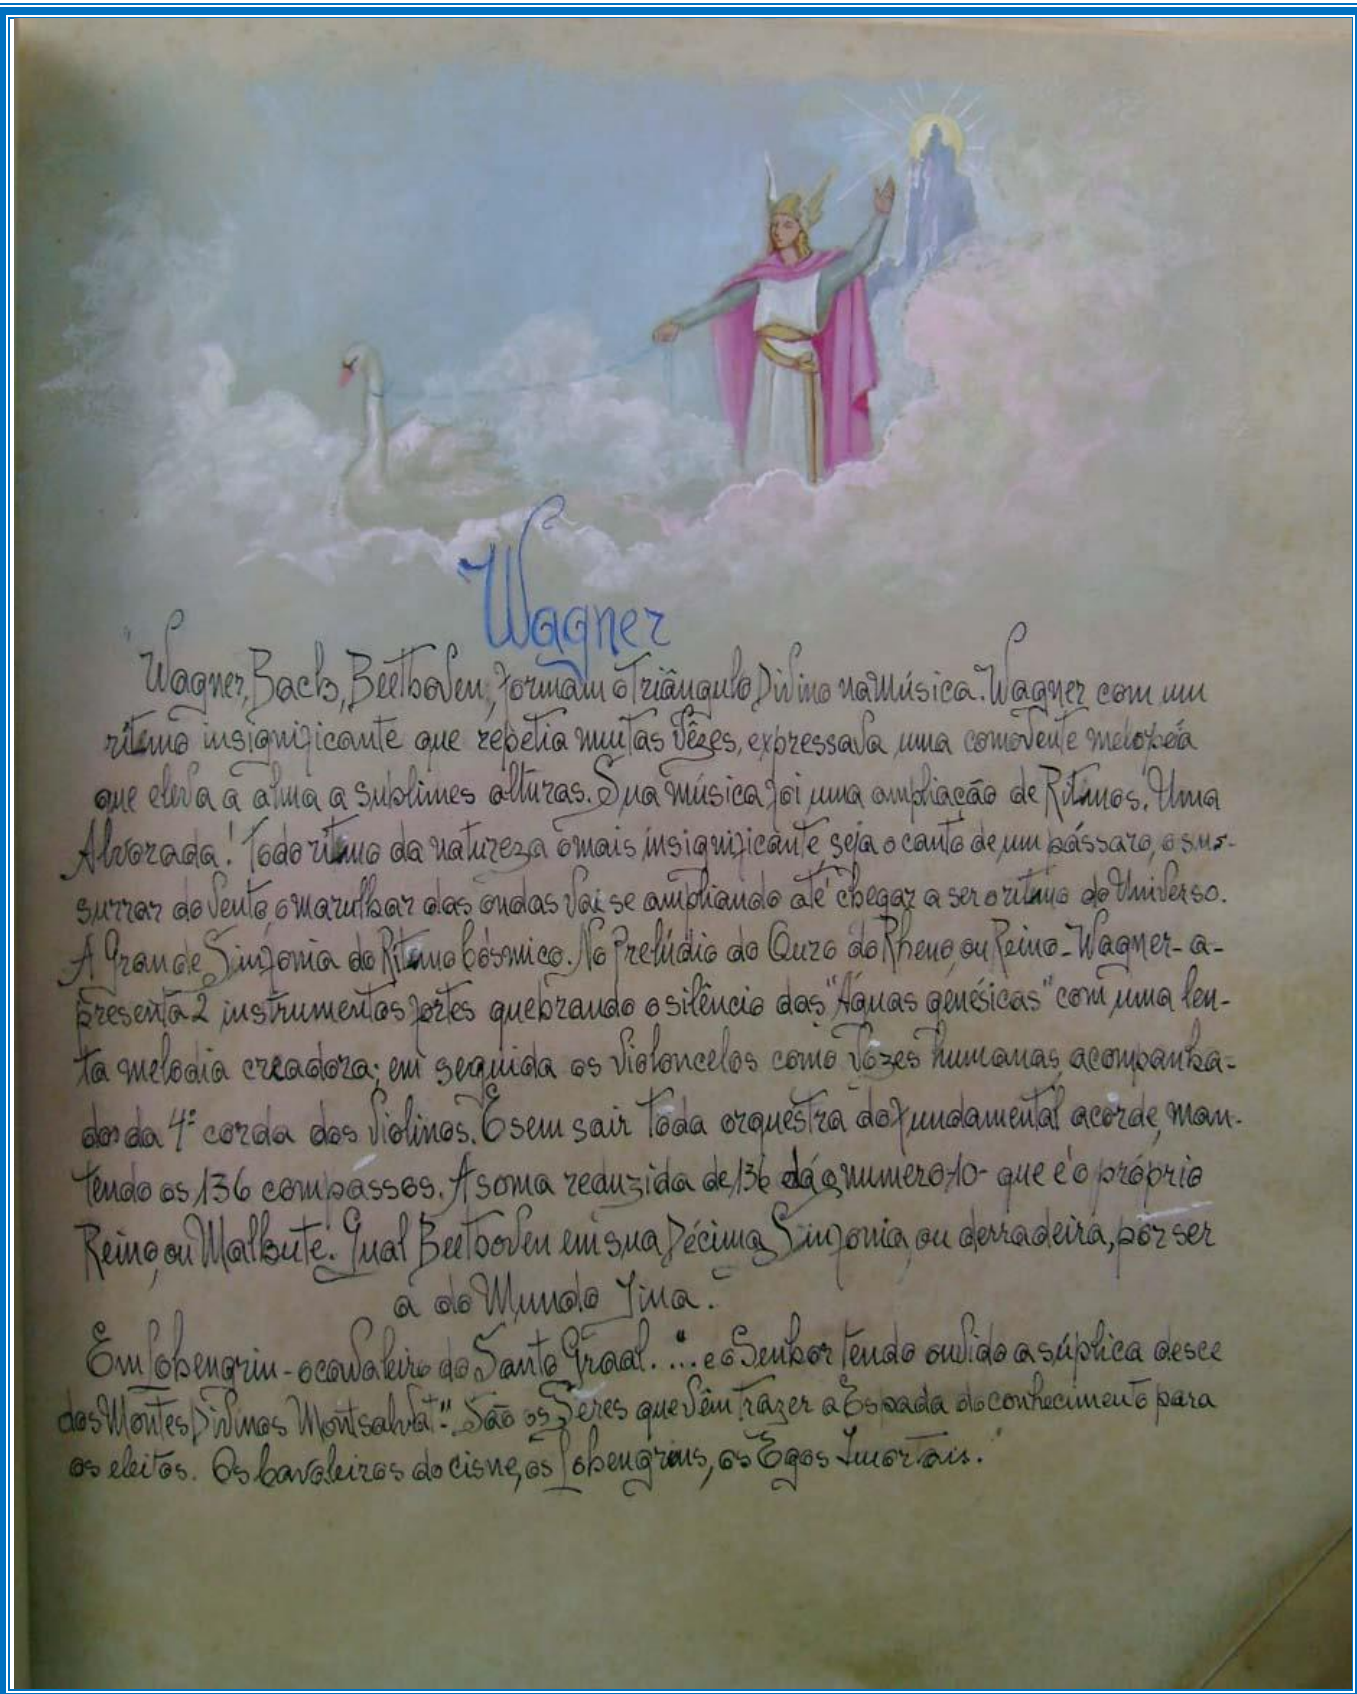 Wagner
"Wagner, Bach, Beethoven, formam o Triângulo Divino na Música. Wagner com um
ritimo insignificante que repetia muitas vêzes, expressava uma comovente melopéa
que eleva a alma a sublimes alturas. Sua música foi uma ampliação de Ritimos. Uma
Alvorada! Todo ritimo da natureza o mais insignificante, seja o canto de um pássaro, o sus-
surrar do vento, o marulhar das ondas vai se ampliando até chegar a ser o ritimo do Universo.
A Grande Sinfonia do Ritimo Cósmico. No Prelúdio do Ouro do Rheno, ou Reino - Wagner - a-
presenta 2 instrumentos fortes quebrando o silêncio das "Águas genésicas" com uma len-
ta melodia creadora; em seguida os violoncelos como vózes humanas, acompanha-
dos da 4ª corda dos violinos. E sem sair toda orquestra do fundamental acorde, man-
tendo os 136 compassos. A soma reduzida de 136 dá o numero -10- que é o próprio
Reino, ou Malkute. Qual Beethoven em sua Décima Sinfonia, ou derradeira, por ser
a do Mundo Jina."
Em Lohengrin - o cavaleiro do Santo Graal. "... e o Senhor tendo ouvido a súplica desce
dos Montes Divinos Montsalvat". São os Seres que vêm trazer a Espada do conhecimento para
os eleitos. Os Cavaleiros do cisne, os Lohengrins, os Egos Imortais."